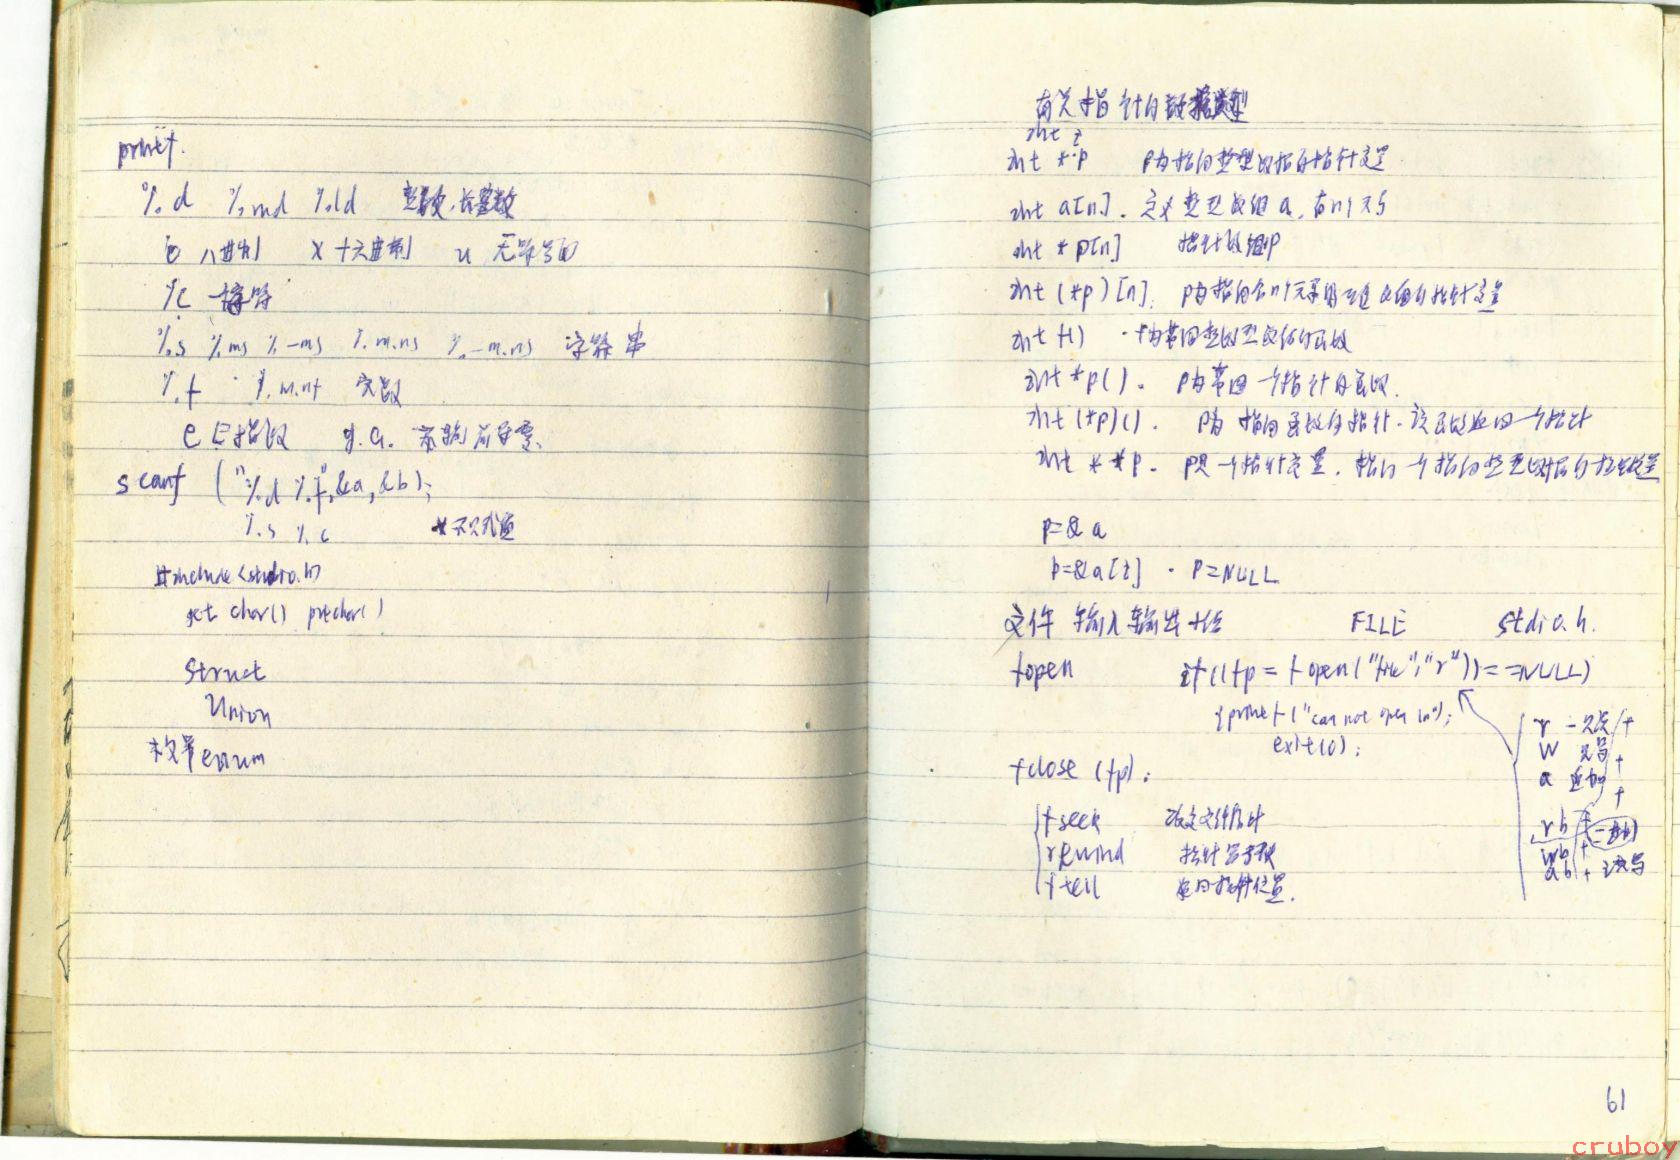 printf.
%d %md %ld 整数,长整数
o 八进制 x 十六进制 u 无符号
%c 字符
%s %ms %-ms %m.ns %-m.ns 字符串
%f %m.nf 实数
e 指数 g.G.
scanf ("%d %f",&a,&b);
%s %c *
#include<stdio.h>
getchar() putchar()
struct
Union
枚举enum
有关指针的数据类型
int i
int *p p为指向整型数据的指针变量
int a[n]. 定义整型数组a,有n个元素
int *p[n] 指针数组p
int (*p)[n]. p为指向含n个元素的一维数组的指针变量
int f() f为带回整型数值的函数
int *p(). p为带回一个指针的函数.
int (*p)(). p为指向函数的指针.该函数返回一个
int **p. p是一个指针变量.指向一个指向整型数据的指针变量
p=&a
p=&a[i] . p=NULL
文件 输入输出 FILE stdio.h.
fopen if((fp=fopen("file","r"))==NULL)
{printf("can not open \n");
exit(0);
fclose (fp);
r 只读 +
w 只写 +
a 追加 +
fseek 改变文件指针
rewind 指针
ftell 返回指针位置.
rb + 二进制
wb +
ab + 读写
61
cruboy